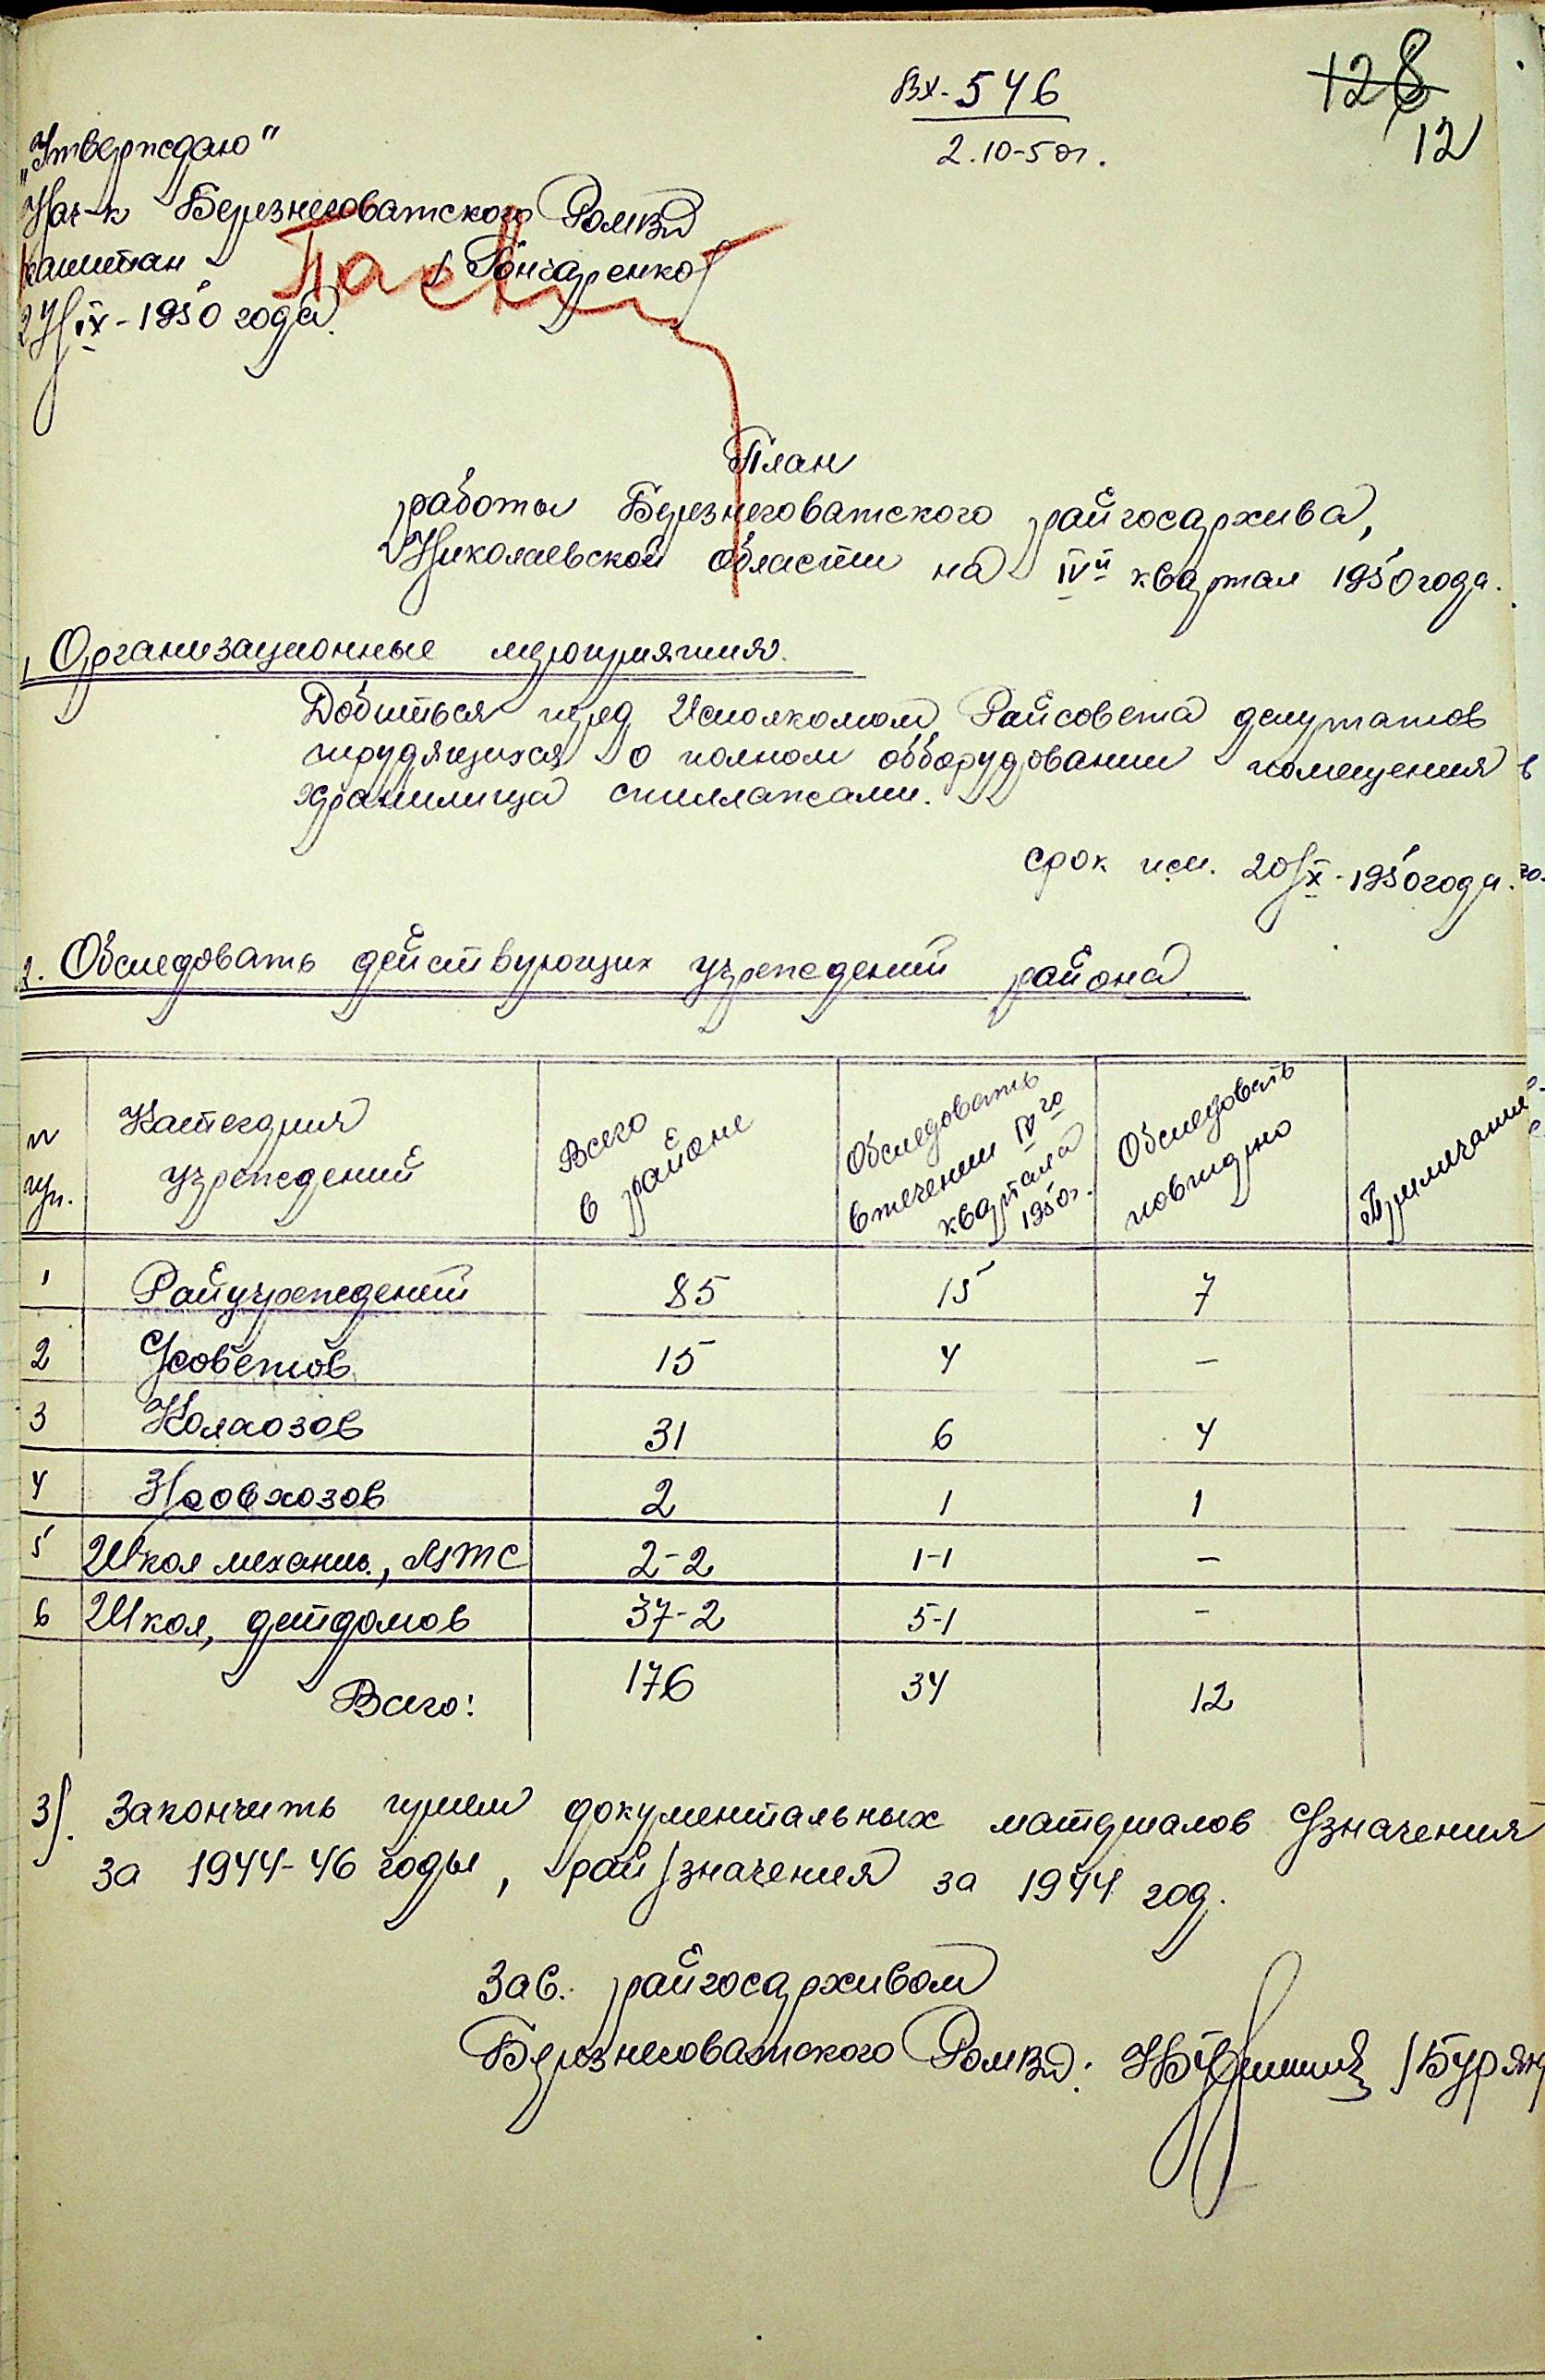 вх. 546
2.10-50г.
128
12
„Утверждаю"
Нач-к Березнеговатского РОМВД
капитан / Гончаренко/
27/IX-1950 года.
План
работы Березнеговатского райгосархива,
Николаевской области на IVй квартал 1950 года.
1 Организационные мероприятия.
Добиться перед Исполкомом Райсовета депутатов
трудящихся о полном обборудовании помещения
хранилища стиллажами.
срок исп. 20/X-1950 года.
2. Обследовать действующих учреждений района
п/п.
Категория учреждений
Всего в районе
Обследовать втечении IVго квартала 1950г.
Обследовать повторно
Примечание
1 Райучреждений 85 15 7
2 С/советов 15 4 –
3 Колхозов 31 6 4
4 Совхозов 2 1 1
5 Школ механиз., МТС 2-2 1-1 –
6 Школ, детдомов 37-2 5-1 –
Всего: 176 34 12
3/. Закончить прием документальных материалов С/значения
за 1944-46 годы, рай/значения за 1944 год.
Зав. райгосархивом
Березнеговатского РОМВД: /Буряк